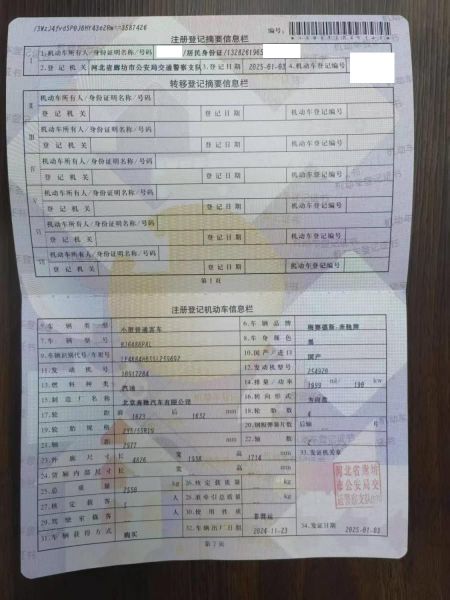 注册登记摘要信息栏
编号:
I 1.机动车所有人/身份证明名称/号码 /居民身份证/1328261965
2.登记机关 河北省廊坊市公安局交通警察支队 3.登记日期 2025-01-03 4.机动车登记编号
转移登记摘要信息栏
机动车所有人/身份证明名称/号码
登记机关 登记日期 机动车登记编号
机动车所有人/身份证明名称/号码
登记机关 登记日期 机动车登记编号
机动车所有人/身份证明名称/号码
登记机关 登记日期 机动车登记编号
机动车所有人/身份证明名称/号码
登记机关 登记日期 机动车登记编号
机动车所有人/身份证明名称/号码
登记机关 登记日期 机动车登记编号
机动车所有人/身份证明名称/号码
登记机关 登记日期 机动车登记编号
第1页
注册登记机动车信息栏
5.车辆类型 小型普通客车 6.车辆品牌 梅赛德斯-奔驰牌
7.车辆型号 8.车身颜色 黑
9.车辆识别代号/车架号 10.国产/进口 国产
11.发动机号 12.发动机型号 254920
13.燃料种类 汽油 14.排量/功率 1999 ml/ 190 kw
15.制造厂名称 北京奔驰汽车有限公司 16.转向形式 方向盘
17.轮距 前 1623 后 1632 mm 18.轮胎数
19.轮胎规格 235/55R19 20.钢板弹簧片数 后轴 片
21.轴距 2977 mm 22.轴数
23.外廓尺寸 长 4826 宽 1938 高 1714 mm 33.发证机关章
24.货厢内部尺寸 长 宽 高 mm
25.总质量 2550 kg 26.核定载质量 kg
27.核定载客 5 人 28.准牵引总质量 kg
29.驾驶室载客 人 30.使用性质 非营运
31.车辆获得方式 购买 32.车辆出厂日期 2024-11-23 34.发证日期 2025-01-03
河北省廊坊
市公安局交
通警察支队
第2页